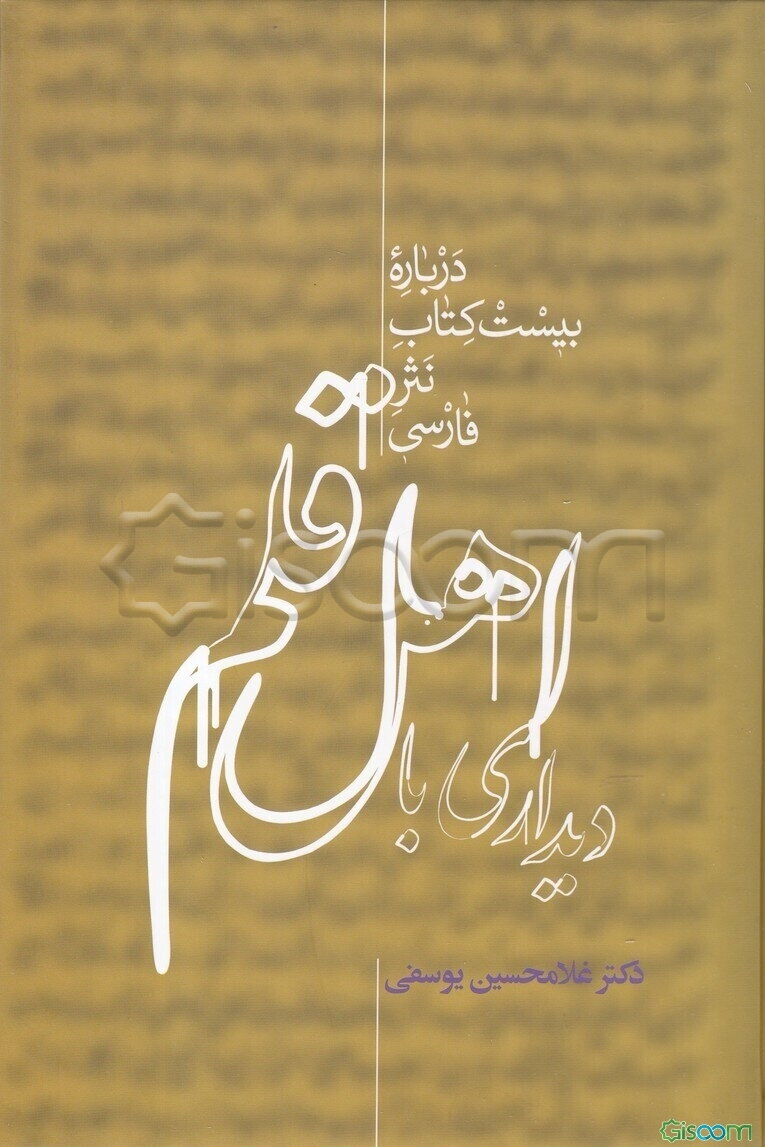 دَرْبارِهٔ
بیسْتْ کِتابِ
نَثْرِ
فارْسی
دیداری با
اهل قلم
دکتر غلامحسین یوسفی
Gisoom
Gisoom